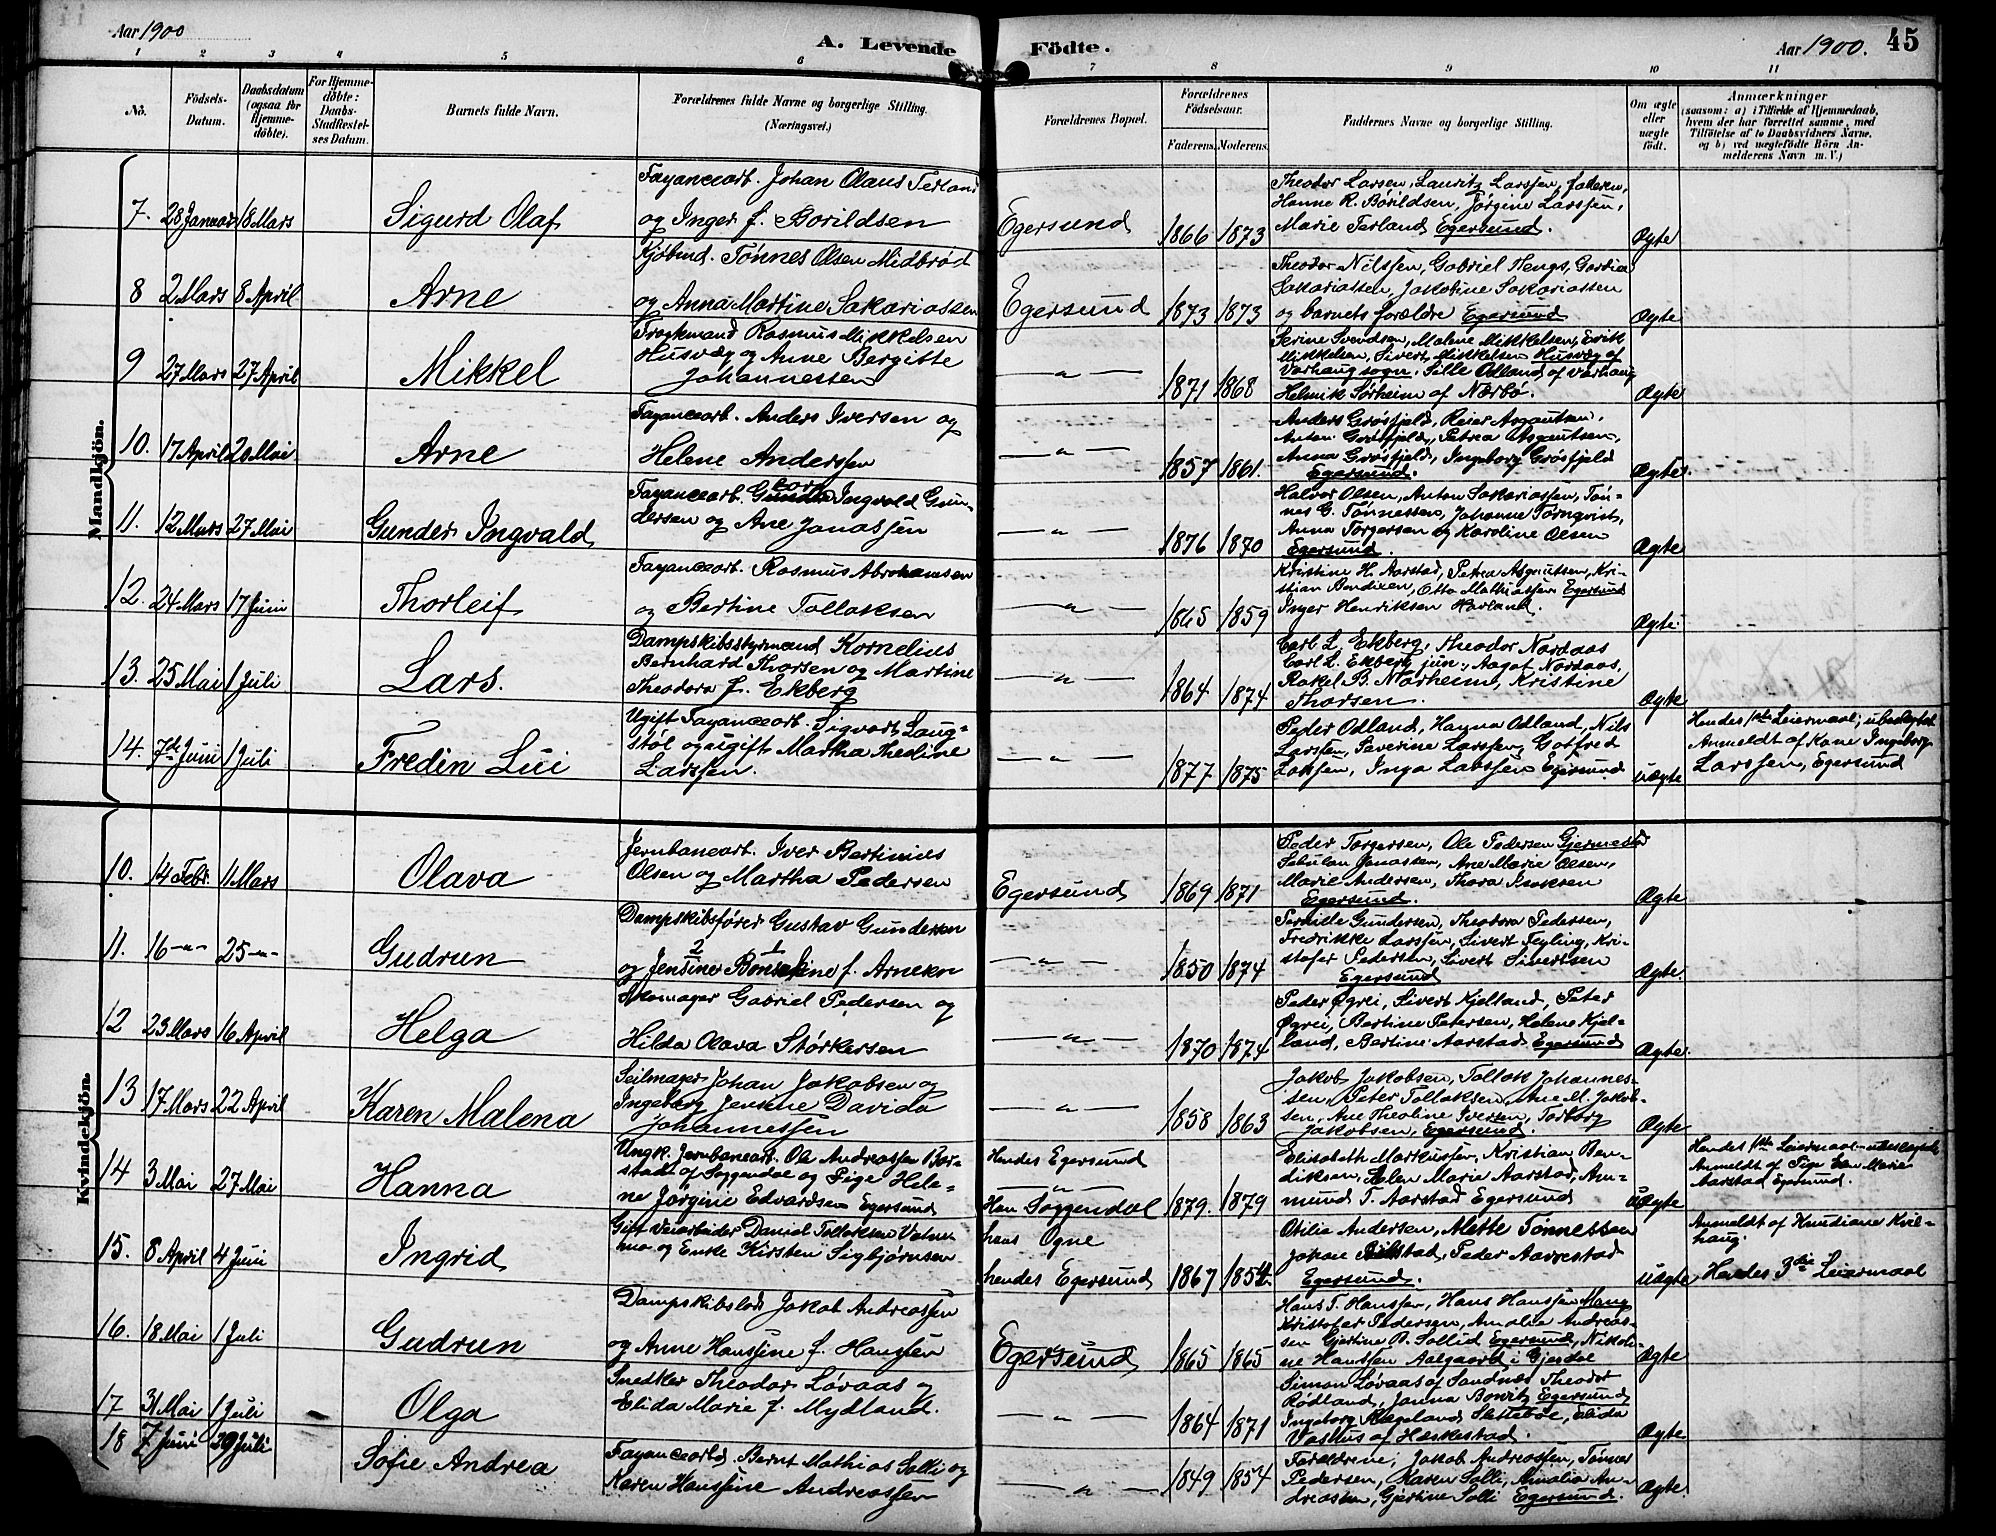 Aar 1900
A. Levende
Födte.
Aar 1900.
45
1 2 3 4 5 6 7 8 9 10 11
No.
Födsels-
Datum.
Daabsdatum
(ogsaa for
Hjemme-
döbte).
For Hjemme-
döbte:
Daabs-
Stadfæstel-
ses Datum.
Barnets fulde Navn.
Forældrenes fulde Navne og borgerlige Stilling.
(Næringsvei.)
Forældrenes Bopæl.
Forældrenes
Födselsaar.
Faderens. Moderens.
Faddernes Navne og borgerlige Stilling.
Om ægte
eller
uægte
födt.
Anmærkninger
(saasom: a) i Tilfælde af Hjemmedaab,
hvem der har forrettet samme, med
Tilföielse af to Daabsvidners Navne,
og b) ved uægtefödte Börn An-
melderens Navn m. V.)
Mandkjön.
7. 28 Januar 18 Mars
Sigurd Olaf
Fayancearb. Johan Olaus Terland
og Inger f. Borildsen
Egersund
1866 1873
Theodor Larsen, Lauritz Larssen,
Hanne R. Börildsen, Jörgine Larssen,
Marie Terland Egersund.
Ægte
8 2 Mars 8 April
Arne
Kjöbmd. Tønnes Olsen Midbrød
og Anna Martine Sakariassen
Egersund
1873 1873
Theodor Nilssen, Gabriel Hengs,
Sakariassen, Jakobine Sakariassen
og barnets forældre Egersund
Ægte
9 27 Mars 27 April
Mikkel
Rasmus Mikkelsen
Husvæg og Anne Bergitte
Johannessen
— " —
1871 1868
Serine Svendsen, Malene Mikkelsen, Erik
Mikkelsen, Sivert Mikkelsen Husvæg af
Varhaug sogn, Sille Odland af Varhaug
Helmik Sörheim af Nærbö.
Ægte
10. 17 April 20 Mai
Arne
Fayancearb. Anders Iversen og
Helene Anderssen
— " —
1857 1861.
Anders Gröstjeld, Reier Asgautsen,
Anton Gröstjeld, Petra Asgautsen,
Anna Gröstjeld, Ingeborg Gröstjeld
Egersund.
Ægte.
11. 12 Mars 27 Mai
Gunder Ingvald
Fayancearb. Ingvald Gun-
dersen og Ane Jonassen
— " —
1876 1870
Halvor Olsen, Anton Sakariassen, Tøn-
nes G. Tønnessen, Johanne Törnqvist,
Anna Torgersen og Karoline Olsen
Egersund.
Ægte
12. 24 Mars 17 Juni
Thorleif
Fayancearb. Rasmus Abrahamsen
og Bertine Tollaksen
— " —
1865 1859
Kristine H. Aarstad, Petra Asgautsen, Kri-
stian Bendixen, Otto Mathiassen Egersund
Inger Henriksen Havland.
Ægte
13. 25 Mai 1 Juli
Lars.
Dampskibsstyrmand Kornelius
Bernhard Thorsen og Martine
Theodora f. Ekberg
— " —
1864 1874
Carl L. Ekberg, Theodor Nordaas
Carl L. Ekberg jun., Aagot Nordaas,
Rakel B. Norheim, Kristine
Thorsen.
Ægte
14. 7de Juni 1 Juli
Fredin Lui
Ugift Fayancearb. Sigvart Laug-
støl og ugift Martha Theoline
Larssen.
— " —
1877 1875
Peder Odland, Hanna Odland, Nils
Larssen, Severine Larssen, Gotfred
Larssen, Inga Larssen Egersund
Uægte
Hendes 1ste Leiermaal,
Anmeldt af Kone Ingeborg
Larssen, Egersund
Kvindekjön.
10. 14 Febr. 11 Mars
Olava
Jernbanearb. Iver Bertinius
Olsen og Martha Pedersen
Egersund
1869 1871
Peder Torgersen, Ole Pedersen Gjermestad
Sebulon Jonassen, Ane Marie Olsen,
Marie Andersen, Thora Isaksen
Egersund.
Ægte
11. 16 — " — 25 — " —
Gudrun
Dampskibsförer Gustav Gundersen
2 1
og Jensine f. Arnesen
— " —
1850 1874
Pernille Gundersen, Theodora Pedersen,
Fredrikke Larssen, Sivert Feyling, Kri-
stofer Pedersen, Sivert Sivertsen
Egersund
Ægte.
12 23 Mars 16 April
Helga
Skomager Gabriel Pedersen og
Hilda Olava Størkersen
— " —
1870 1874
Peder Øgrei, Sivert Kjelland, Peter
Øgrei, Bertine Petersen, Helene Kjel-
land, Bertine Aarstad Egersund
Ægte.
13 17 Mars 22 April
Karen Malena
Seilmager Johan Jakobsen og
Ingeborg Jensine Davida
Johannessen
— " —
1858 1863
Jakob Jakobsen, Tollak Johannes-
sen, Peter Tollaksen, Ane M. Jakob-
sen, Ane Theoline Iversen, Torborg
Jakobsen, Egersund.
Ægte
14 3 Mai 27 Mai
Hanna
Ungk. Jernbanearb. Ole Andreassen Bar-
stad af Soggendal og Pige Hele-
ne Jörgine Edvardsen Egersund
Hendes Egersund
— " —
Han Soggendal
1879. 1879
Elisabeth Markussen, Kristian Ben-
diksen, Elen Marie Aarstad, An-
mund T. Aarstad Egersund
Uægte
Hendes 1ste Leiermaal
Anmeldt af Pige Elen Marie
Aarstad Egersund.
15. 8 April 4 Juni
Ingrid
Gift Veiarbeider Daniel Tollaksen
og Enke Kirsten Sigbjørnsen
hans Ogne
hendes Egersund
1867 1854
Otilia Andersen, Mette Tønnessen
Johan Aarstad, Peder Aarrestad
Egersund.
Uægte
Anmeldt af Kvil-
haug.
Hendes 3die Leiermaal
16. 18 Mai 1 Juli
Gudrun
Dampskibslods Jakob Andreassen
og Anne Hanssine f. Hanssen
Egersund
1865 1865
Hans T. Hanssen, Hans Hanssen Mong
Kristofer Pedersen, Amalia Andreas-
sen Gjertine B. Sollid Egersund, Nikoli-
ne Hanssen Aalgaard i Gjesdal
Ægte
17 31 Mai 1 Juli
Olga
Snedker Theodor Løvaas og
Elida Marie f. Mydland.
— " —
1864 1871
Simon Løvaas af Sandnæs Theodor
Rødland, Janna Egersund
Ingeborg Rægeland Slettebøe, Elida
Vashus af Heskestad.
Ægte
18 7 Juni 29 Juli
Sofie Andrea
Fayancearb. Bernt Mathias Solli og
Karen Hanssine Andreassen
— " —
1849 1854
Forældrene, Jakob Andreassen, Tønnes
Pedersen, Karen Solli, Amalia An-
dreassen, Gjertine Solli Egersund.
Ægte.